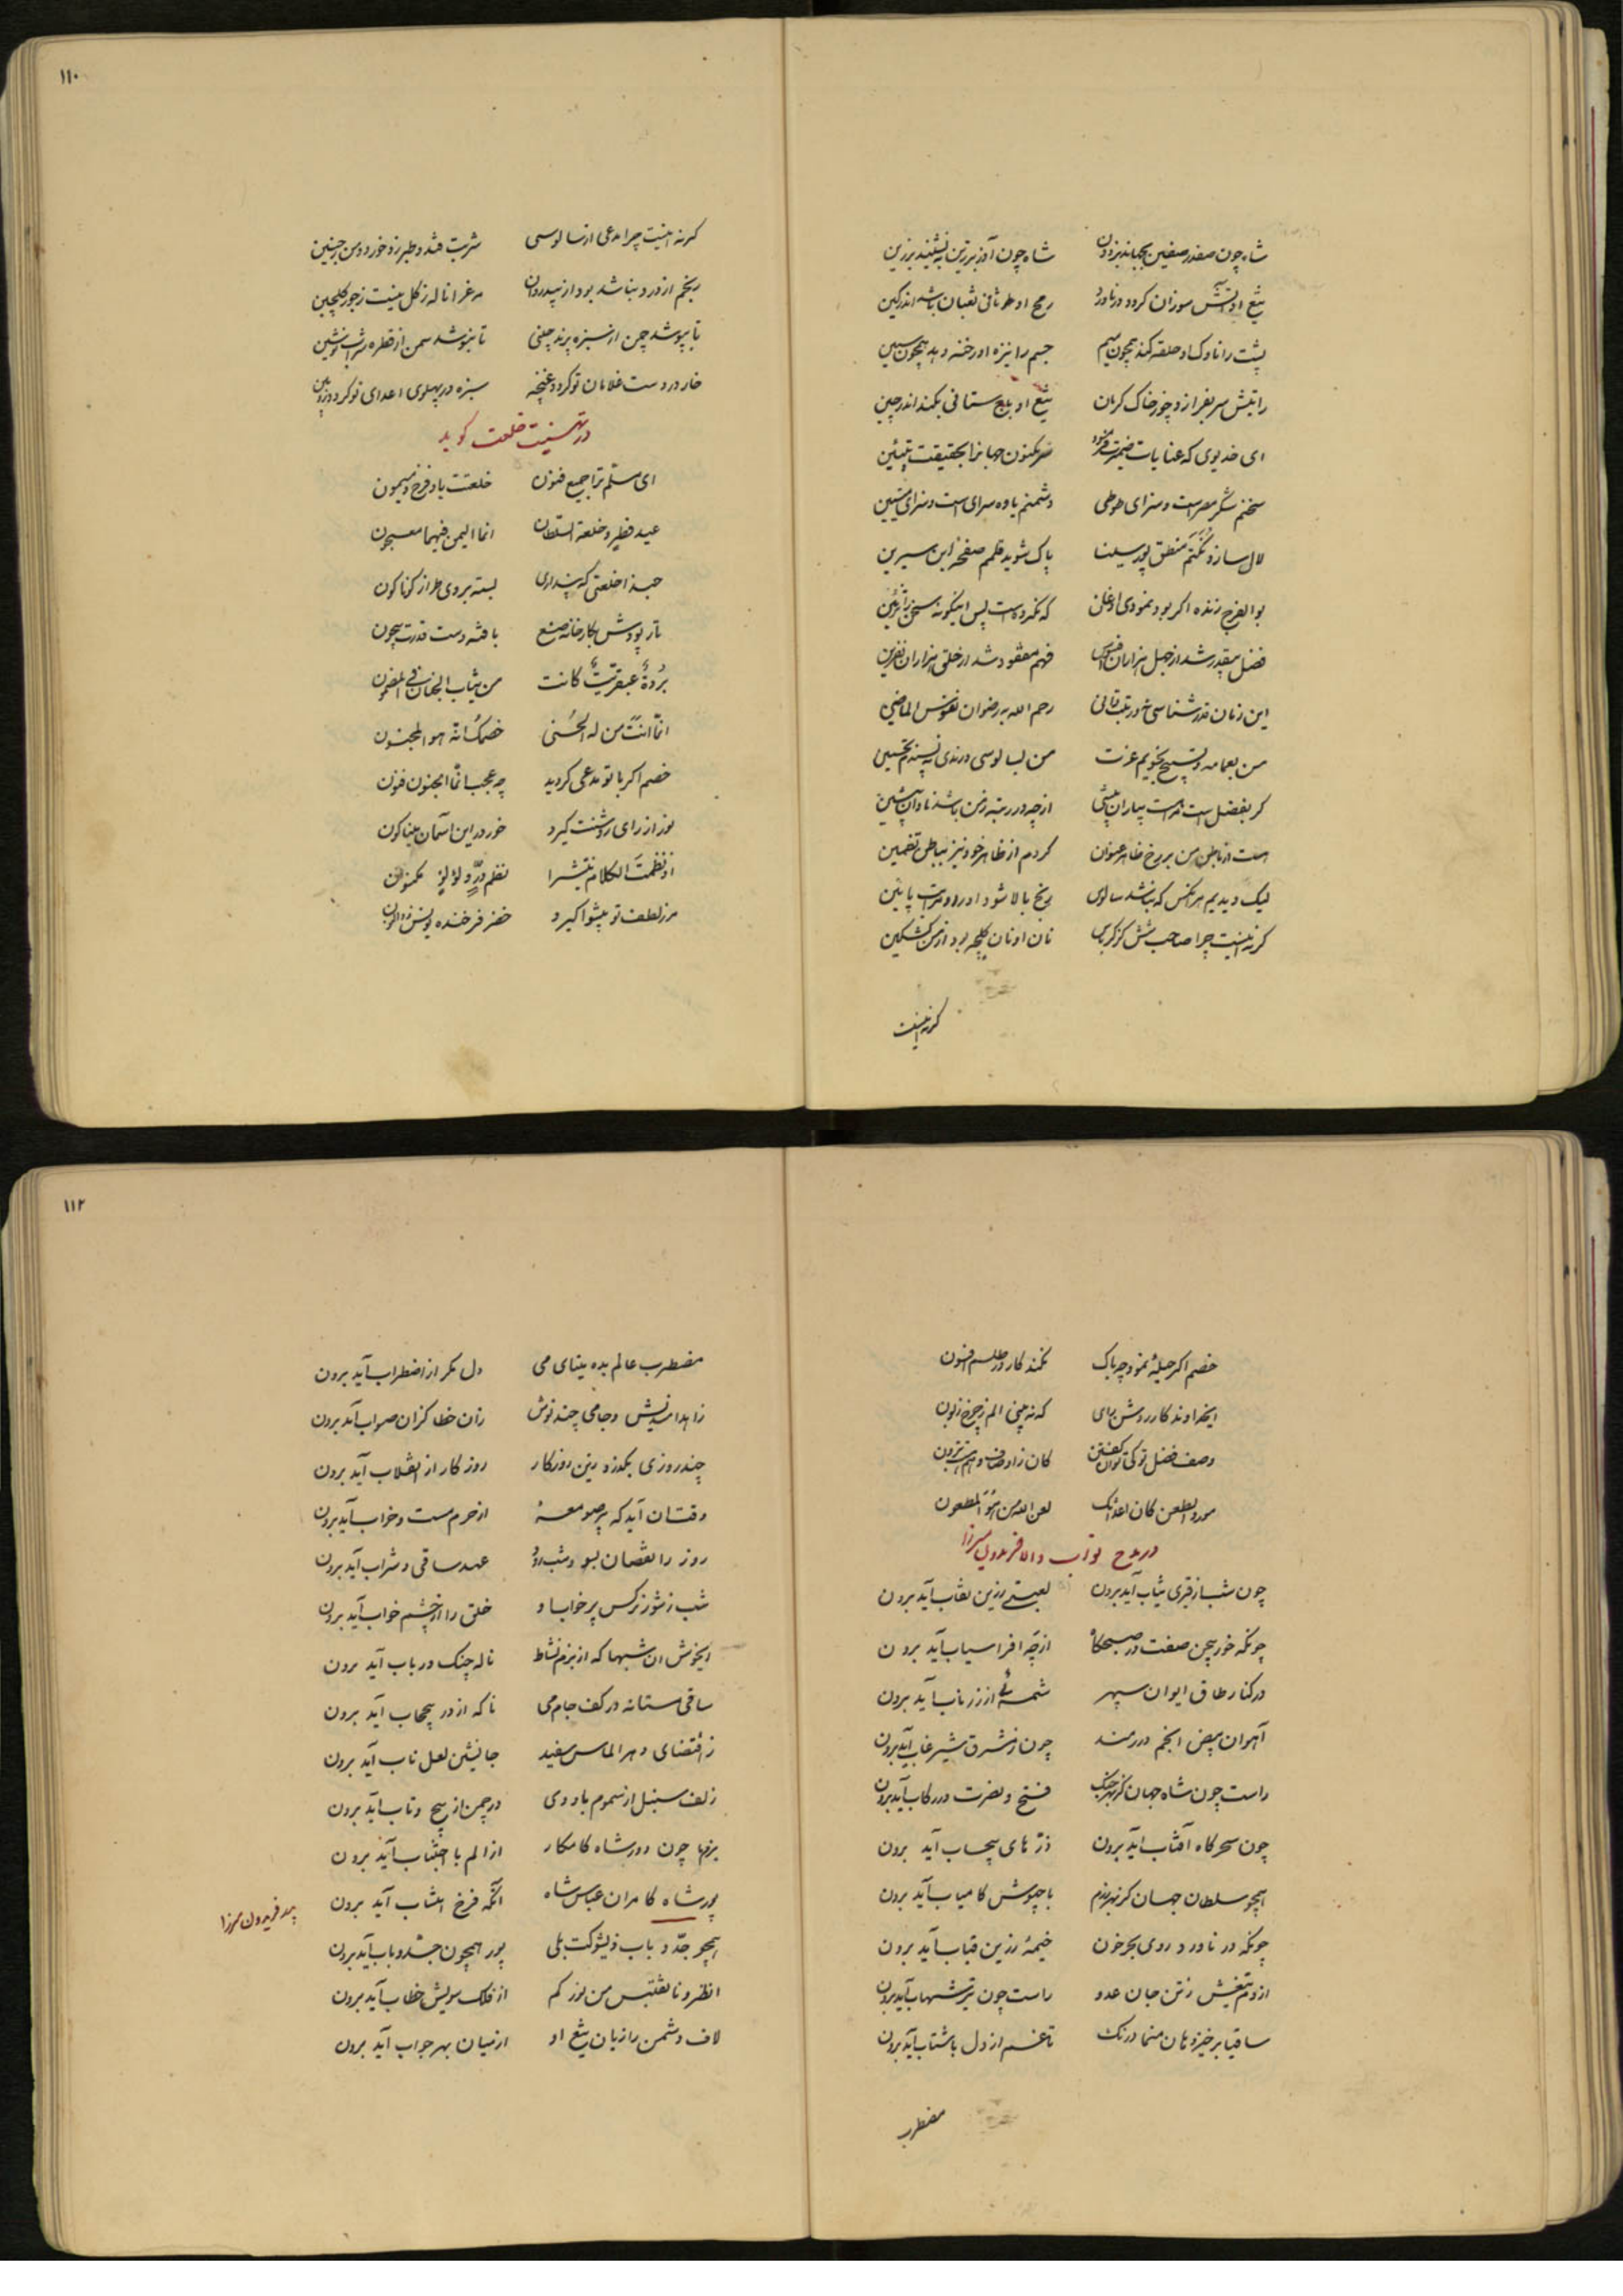 شاه چون صفدر صفین بجهاند بزدون شاه چون آذر برزین بنشیند بزرین
تیغ او آتش سوزان کردد در ناورد رمح او طرفانی ثعبان باشد اندر کین
پشت را ناوک او حلقه کند همچون میم جسم را نیزه او رخنه دهد همچون سین
رایتش سر بفرازد چو ز خاک کرمان تیغ او باج ستانی بکند اندر چین
ای خدیوی که عنایات ضمیرت فرمود سر مکنون جهانرا بحقیقت تبیین
سخنم شکر مصر است و سزای طوطی دشمنم یاوه سرای است و سزای
لال سازد نکتم منطق پور سینا پاک شوید قلمم صفحه ابن سیرین
بوالفرج زنده اکر بود نمودی اذعان که نکرده است پس اینکونه سخن را تزئین
فضل بیقدر شد از جهل هزاران افسوس فهم مفقود شد از خلق هزاران نفرین
این زمان قدر شناسی رحم الله به رضوان نفوس الماضین
من بعمامه و تسبیح نجویم عزت من بسالوسی و رندی نپسندم تحسین
کر بفضل است از چه در رتبه ز من باشد نادان پیشین
هست از باطن من بر رخ ظاهر عنوان کردم از ظاهر خود نیز بباطن تضمین
لیک دیدیم هر آنکس که نباشد سالوس رنج بالا شود او را و مراتب پائین
کر نه اینست چرا صاحب نان او نان کلیچه بود از من کشکین
کر نه اینست
۱۱۰
کر نه اینست چرا مدعی از سالوسی شربت قند و طبرزد خورد و من چنین
رنجم از درد نباشد بود از بیدردان مرغ را ناله ز کل نیست ز جور کلچین
تا بپوشد چمن از سبزه پرند چینی تا بنوشد سمن از قطره شراب نوشین
خار در دست غلامان تو کردد غنچه سبزه در پهلوی اعدای تو کردد زوبین
در تهنیت خلعت کوید
ای مسلم ترا جمیع فنون خلعتت باد فرخ و میمون
عید فطر و خلعة السلطان انما الیمن فیهما معجون
حبذا خلعتی که پنداری بسته بر وی طراز کوناکون
تار پودش بکارخانه صنع بافته دست قدرت بیچون
بردة عبقریة کانت من ثیاب الجنان فی المضمون
انما انت من له الحسنی خصمک انه هو المجنون
خصم اکر با تو مدعی کردید چه عجب انما الجنون فنون
نور از رای روشنت کیرد خور در این آسمان میناکون
اذ نظمت الکلام منتشرا نظم در و لؤلؤ مکنون
مر ز لطف تو پیشوا کیرد خضر فرخنده یونس ذوالنون
خصم اکر حیلهٔ نمود چه باک نکند کار در طلسم افسون
ایخداوند کار روشن رای که نه بینی الم ز چرخ زبون
وصف فضل تو کی توان کفتن کان ز اوصاف و هم است برون
مورد الطعن کان اعداک لعن الله من هو المطعون
در مدح نواب والا فریدون میرزا
چون شب از قیری ثیاب آید برون لعبتی زرین نقاب آید برون
چونکه خور بیجن صفت در صبحکاه از چه افراسیاب آید برون
در کنار طاق ایوان سپهر شمسهٔ از زر ناب آید برون
آهوان بیض انجم در رمند چون ز مشرق شیر غاب آید برون
راست چون شاه جهان کز بهر جنک فتح و نصرت در رکاب آید برون
چون سحرکاه آفتاب آید برون ذره های بیحساب آید برون
همچو سلطان جهان کز بهر رزم با جیوش کامیاب آید برون
چونکه در ناورد روی بحر خون خیمهٔ زرین قباب آید برون
از دم تیغش ز تن جان عدو راست چون تیر شهاب آید برون
ساقیا برخیز و هان منما درنک تا غم از دل باشتاب آید برون
مضطرب
۱۱۲
مضطرب عالم بده مینای می دل مکر از اضطراب آید برون
زاهدا بندیش و جامی چند نوش زان خطا کزان صواب آید برون
چند روزی بکذرد زین روزکار روزکار از انقلاب آید برون
وقت ان آید که پیر صومعهٔ از حرم مست و خراب آید برون
روز را نقصان بود و شب رود عهد ساقی و شراب آید برون
شب ز شور نرکس پر خواب او خلق را از چشم خواب آید برون
ایخوش ان شبها که از بزم نشاط ناله چنک و رباب آید برون
ساقی مستانه در کف جام می ناکه از در بیحجاب آید برون
ز اقتضای دهر الماس سفید جانشین لعل ناب آید برون
زلف سنبل از سموم باد دی در چمن از پیچ و تاب آید برون
بزمها چون دور شاه کامکار از الم با اجتناب آید برون
پور شاه کامران عباس شاه آنکه فرخ انتساب آید برون
پدر فریدون میرزا
همچو جد و باب ذیشوکت بلی پور همچون جد و باب آید برون
انظرونا نقتبس من نورکم از فلک سویش خطاب آید برون
لاف دشمن را زبان تیغ او از میان بهر جواب آید برون